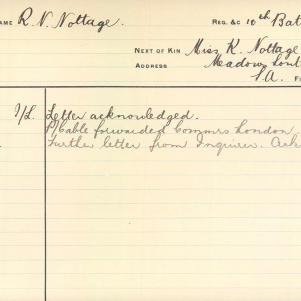 NAME R. V. Nottage. REG. &C 10th Bat
NEXT OF KIN Miss K. Nottage
ADDRESS Meadows
S.A.
I/L. Letter acknowledged.
Cable forwarded Commrs London
Further letter from Inquirer.